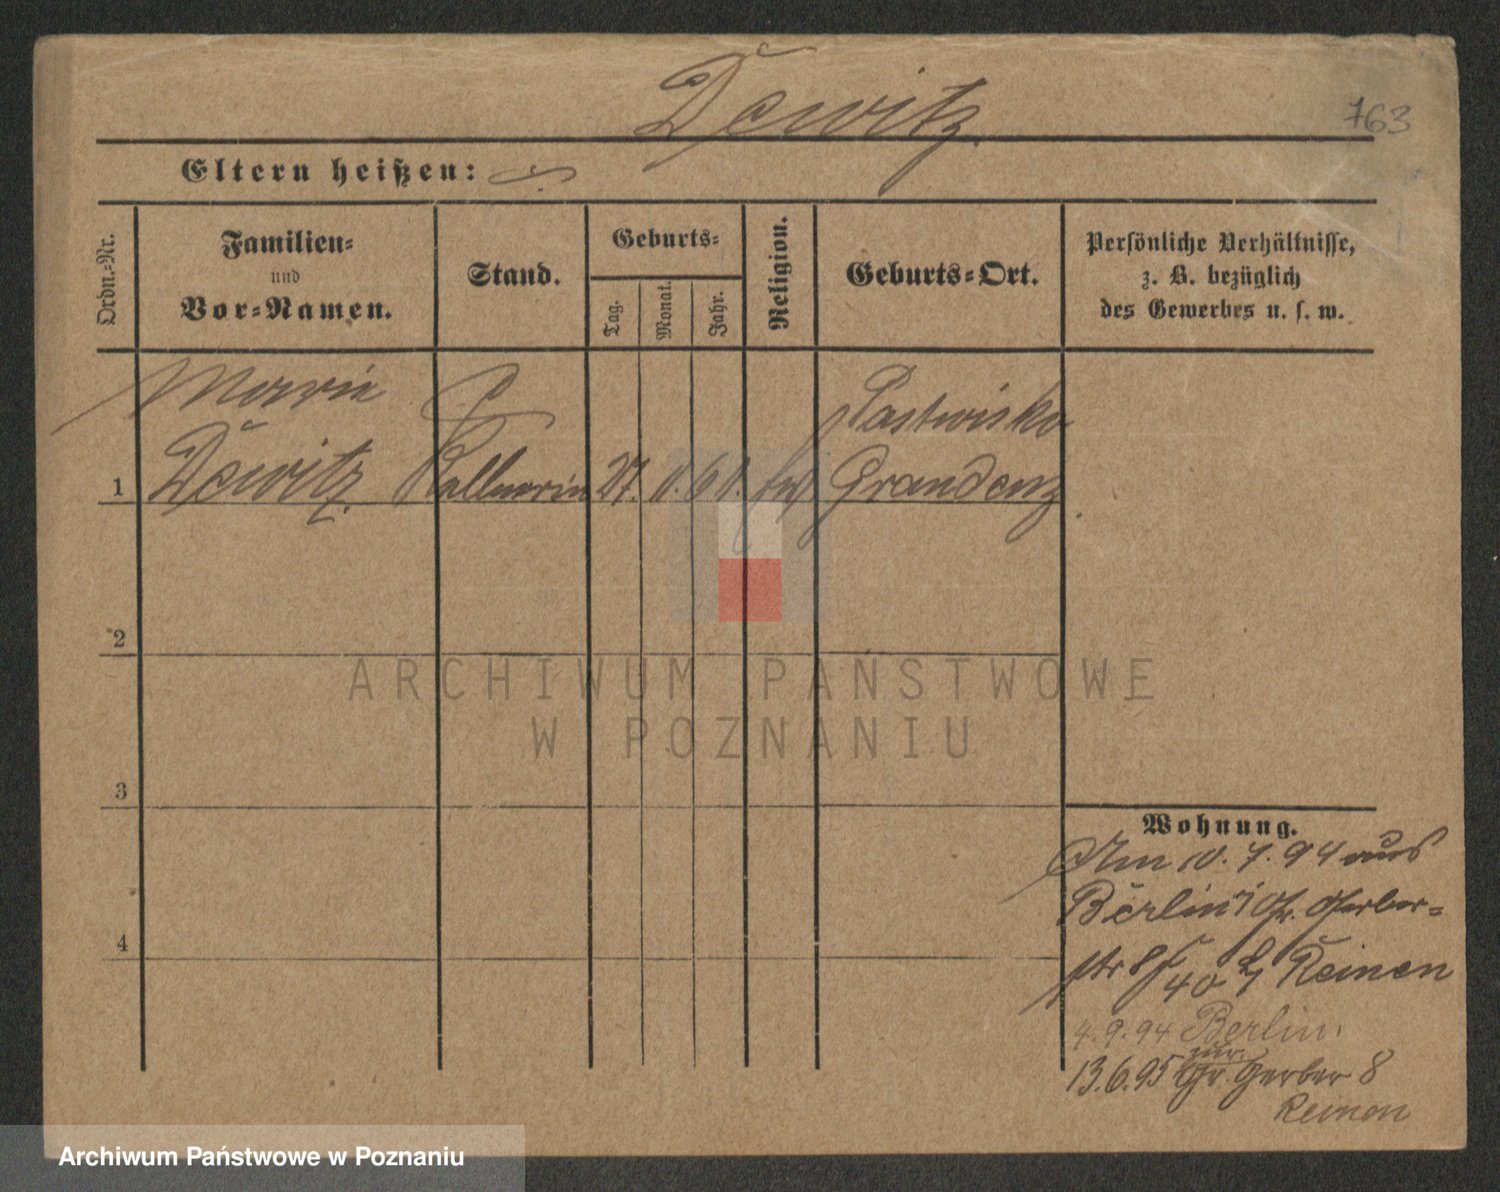 Dewitz.
763
Eltern heißen:
Ordn.-Nr.
Familien-
und
Vor-Namen.
Stand.
Geburts-
Tag.
Monat.
Jahr.
Religion.
Geburts-Ort.
Persönliche Verhältnisse,
z. B. bezüglich
des Gewerbes u. s. w.
Marie
Pastwisko
1
Dewitz.
Kellnerin
27.
Graudenz
2
3
4
ARCHIWUM PAŃSTWOWE
W POZNANIU
Wohnung.
Am 10. 7. 94 aus
Berlin Gr. Gerber-
str 8 Reinen
4.9.94 Berlin
zur.
13.6.95 Gr. Gerber 8
Reinen
Archiwum Państwowe w Poznaniu